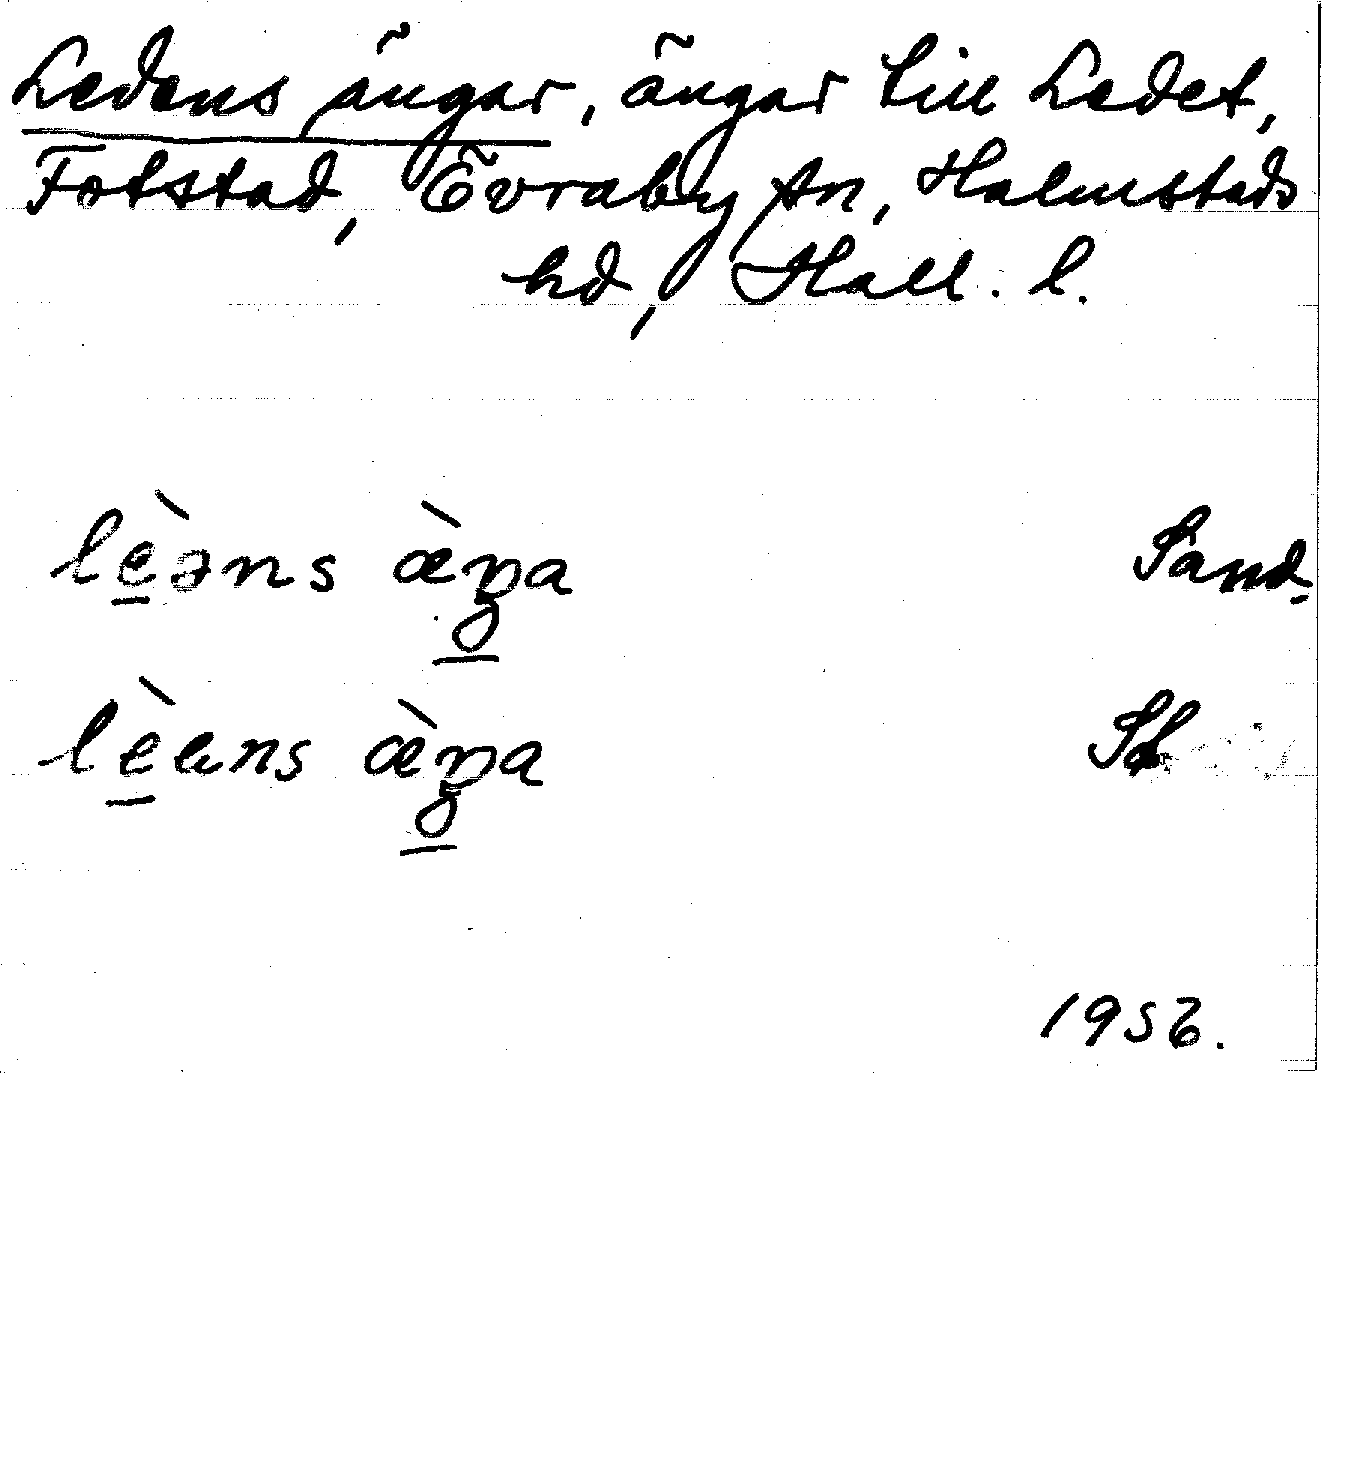 Ledens ängar, ängar till Ledet,
Fotstad, Övraby sn, Halmstads
hd, Hall. l.
lèəns æ̀ŋa Sand.
æ̀ŋa
1956.